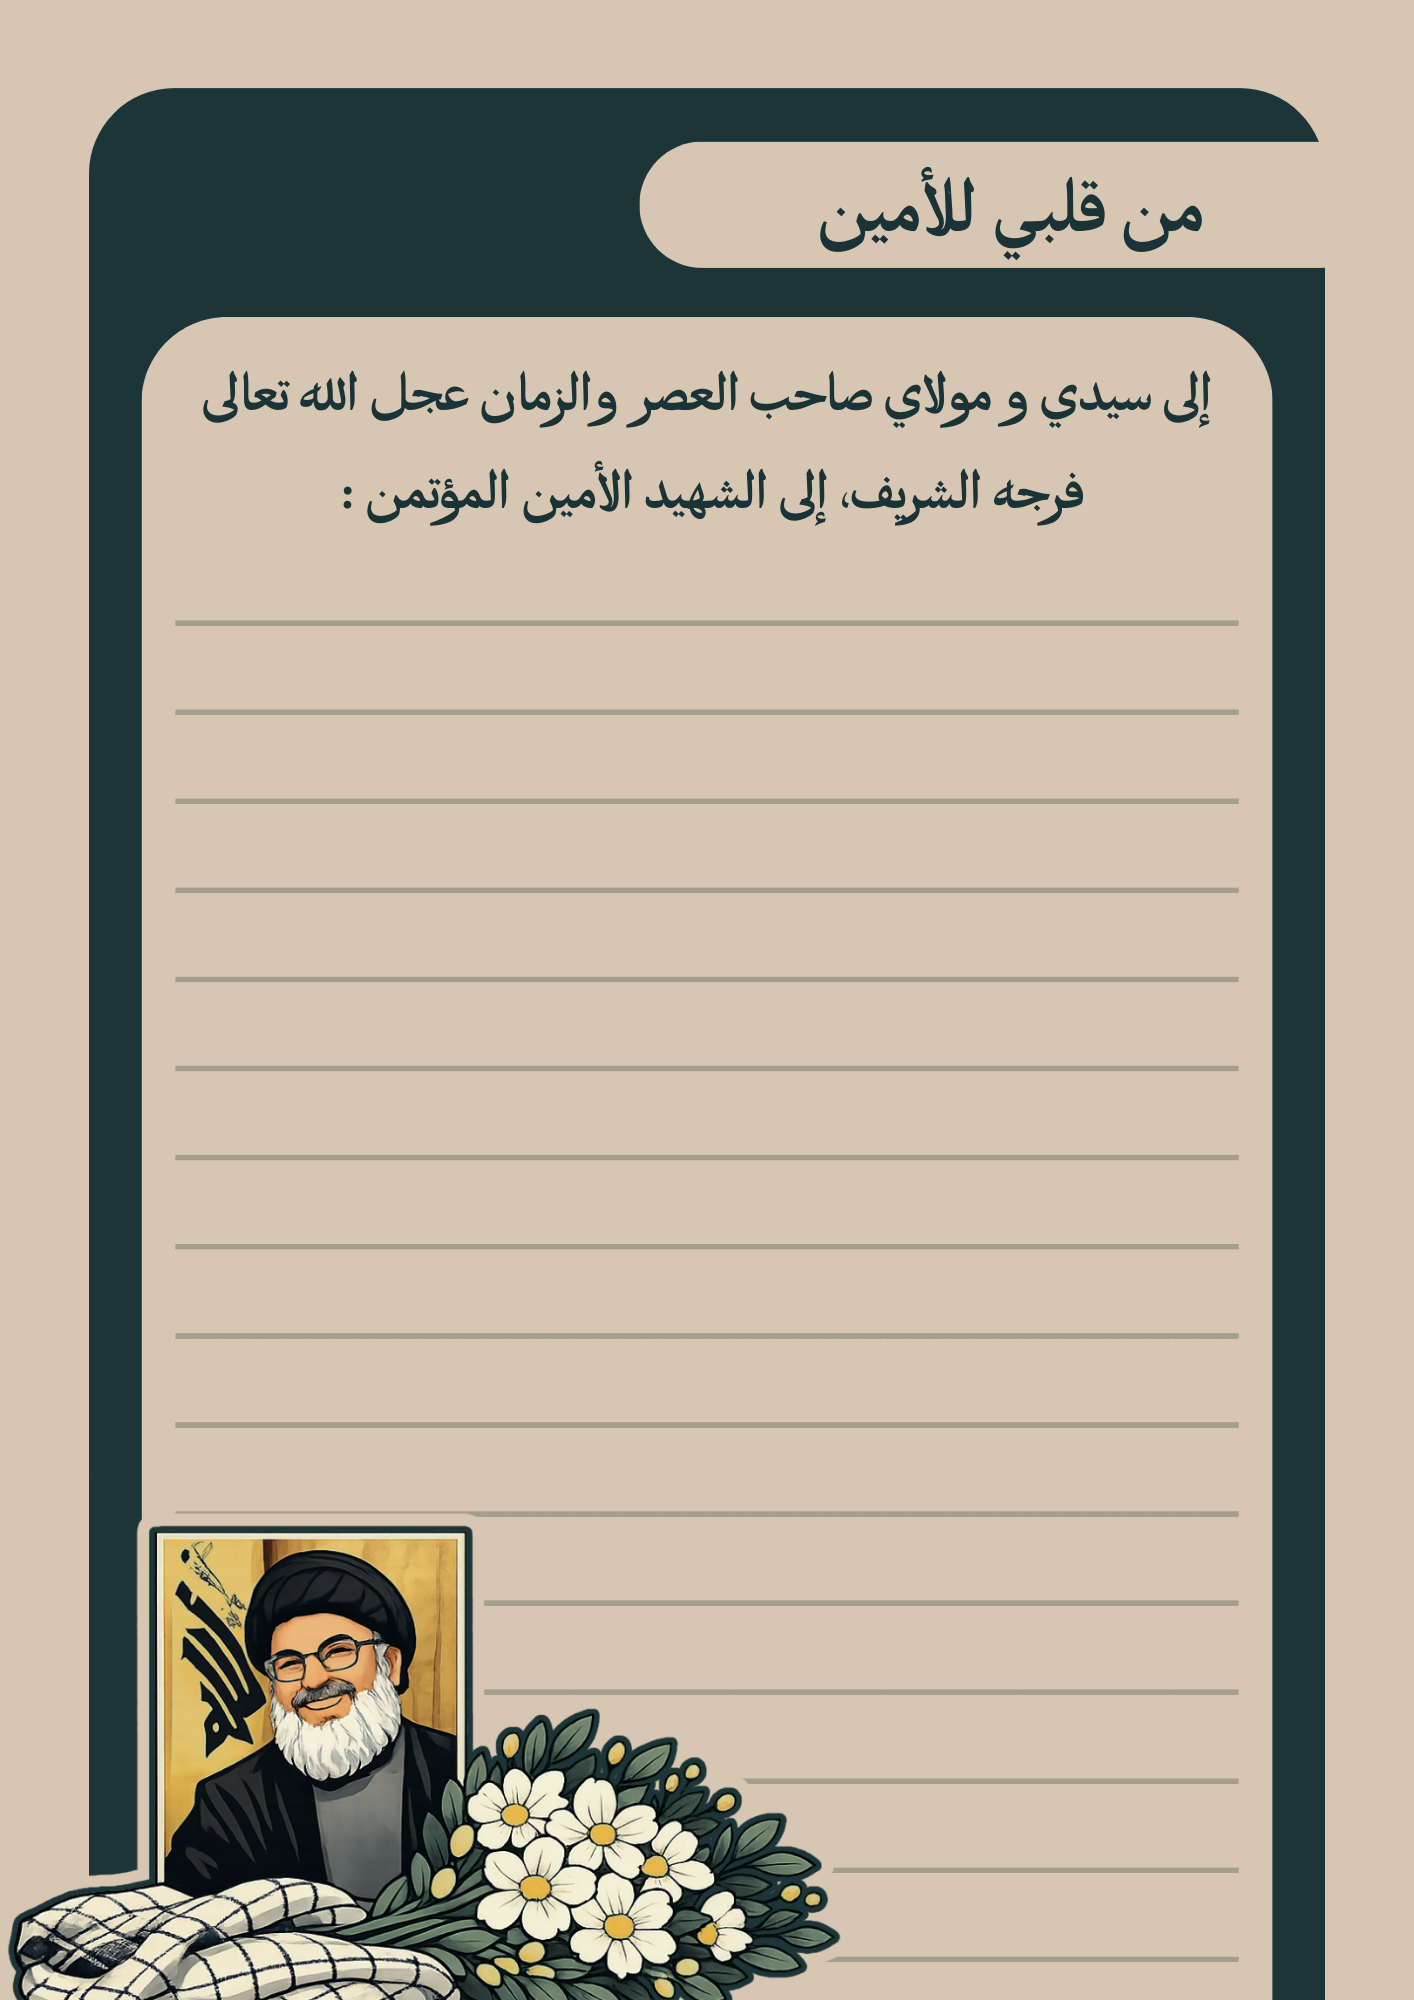 من قلبي للأمين
إلى سيدي و مولاي صاحب العصر والزمان عجل الله تعالى
فرجه الشريف، إلى الشهيد الأمين المؤتمن :